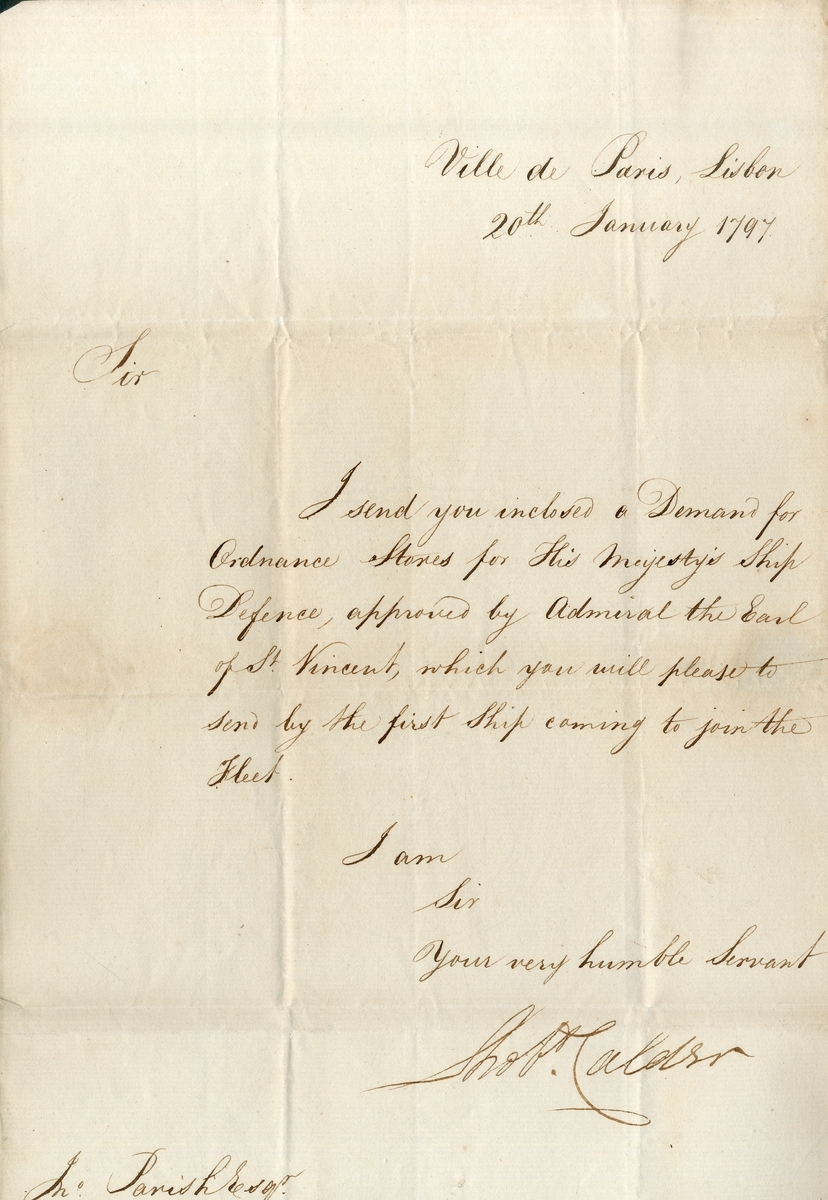 Ville de Paris, Lisbon
20th January 1797
Sir
I send you inclosed a Demand for
Ordnance Stores for His Majesty's Ship
Defence, approved by Admiral the Earl
of St. Vincent, which you will please to
send by the first Ship coming to join the
Fleet.
I am
Sir
Your very humble Servant
Robt. Calder
Jno. Parish Esqr.